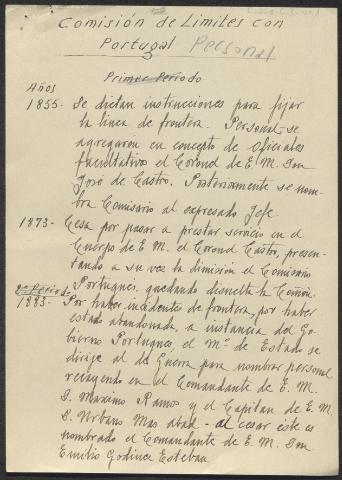 Comisión de Limites con
Portugal Personal
Primer Periodo
Años
1855- Se dictan instrucciones para fijar
la linea de frontera. Personal, se
agregaron en concepto de Oficiales
facultativo el Coronel de E. M. Don
José de Castro. Posteriormente se nom-
bra Comisario al expresado Jefe.
1873- Cesa por pasar a prestar servicio en el
Cuerpo de E. M. el Coronel Castro, presen-
tando a su vez la dimisión el Comisario
Portugues, quedando disuelta la Comión.
2º Periodo
1883- Por haber incidentes de frontera, por haber
estado abandonada, a instancia del Go-
bierno Portugues, el Mº de Estado se
dirije al de Guerra para nombrar personal
recayendo en el Comandante de E. M.
D. Maximo Ramos y el Capitan de E. M.
D. Urbano Mas abad - al cesar este es
nombrado el Comandante de E. M. Don
Emilio Godinez Esteban